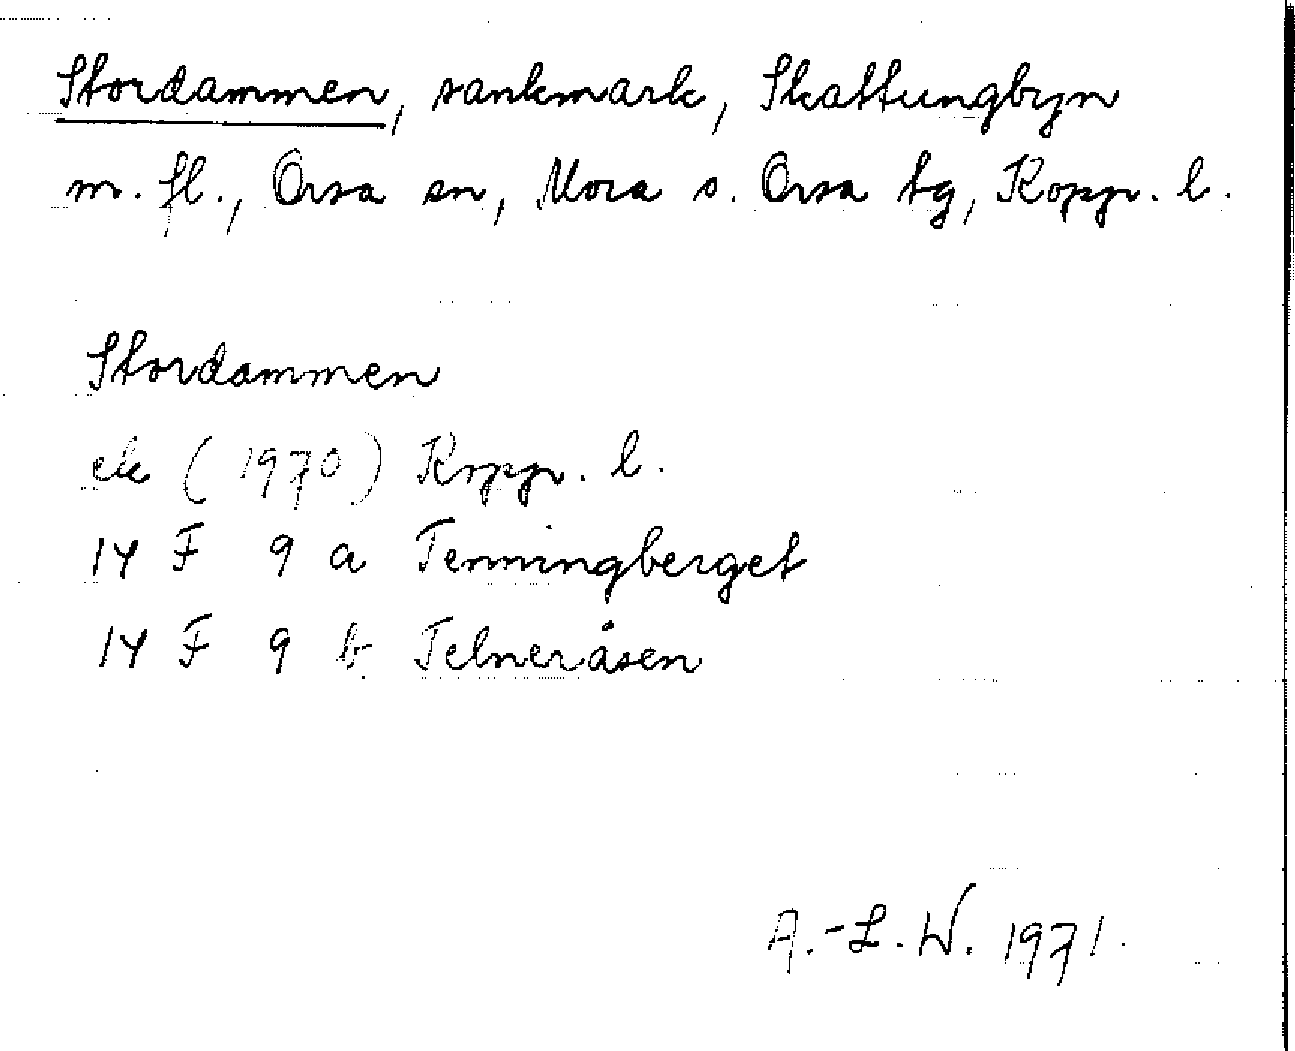 Stordammen, sankmark, Skattungbyn
m. fl., Orsa sn, Mora o. Orsa tg, Kopp. l.
Stordammen
ek (1970) Kopp. l.
14 F 9 a Tenningberget
14 F 9 b Telneråsen
A.-L. W. 1971.